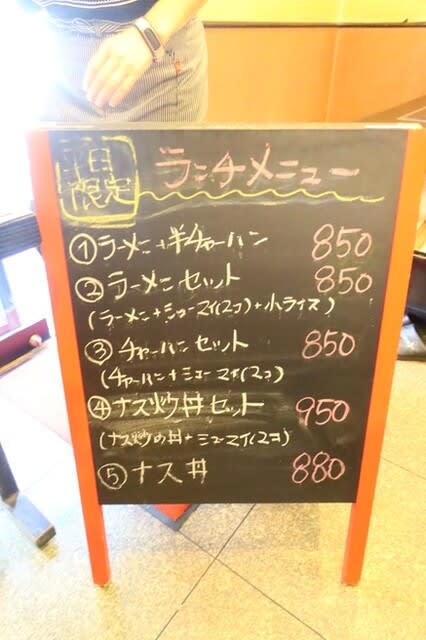 平日限定
ランチメニュー
①ラーメン+半チャーハン 850
②ラーメンセット 850
(ラーメン+シューマイ(2コ)+小ライス)
③チャーハンセット 850
(チャーハン+シューマイ(2コ)
④ナス炒丼セット 950
(ナス炒め丼+シューマイ(2コ)
⑤ナス丼 880